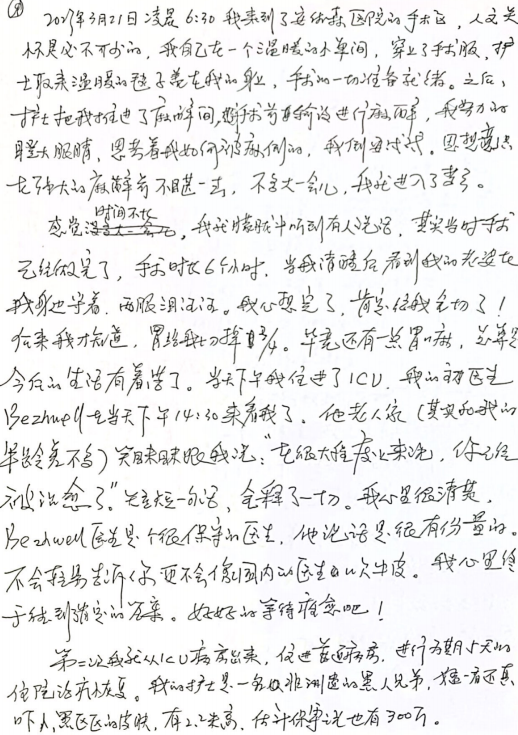 ④ 2019年3月21日凌晨6:30我来到了安德森医院的手术区,人文关
怀是必不可少的,我自己在一个温暖的小单间,穿上了手术服,护
士取来温暖的毯子盖在我的身上,手术的一切准备就绪。之后,
护士把我推进了麻醉间,手术前再输液进行麻醉,我努力的
睁大眼睛,思考着我如何被麻倒的,我倒要试试。思想意志
在强大的麻醉前不堪一击,不多大一会儿,我就进入了梦乡。
感觉时间不长,我就朦胧中听到有人说话,其实当时手术
已经做完了,手术时长6个小时。当我清醒后看到我的老婆在
我身边守着,两眼泪汪汪。我心想完了,肯定给我全切了!
后来我才知道,胃给我切掉3/4。毕竟还有一点胃嘛,总算是
今后的生活有着落了。当天下午我住进了ICU,我的主刀医生
Bezhwell在当天下午14:30来看我了。他老人家(其实和我的
年龄差不多)笑眯眯跟我说:"在很大程度上来说,你已经
被治愈了。"短短一句话,全释了一切。我心里很清楚,
Bezhwell医生是个很保守的医生,他说话是很有份量的。
不会轻易告诉你,更不会像国内的医生自以吹牛皮。我心里终
于得到确定的答案。好好的等待痊愈吧!
第二天我就从ICU病房出来,住进普通病房,进行为期5天的
住院治疗恢复。我的护士是一名似非洲逃的黑人兄弟,猛一看还真
吓人,黑压压的皮肤,有2.2米高,估计保守说也有300斤。